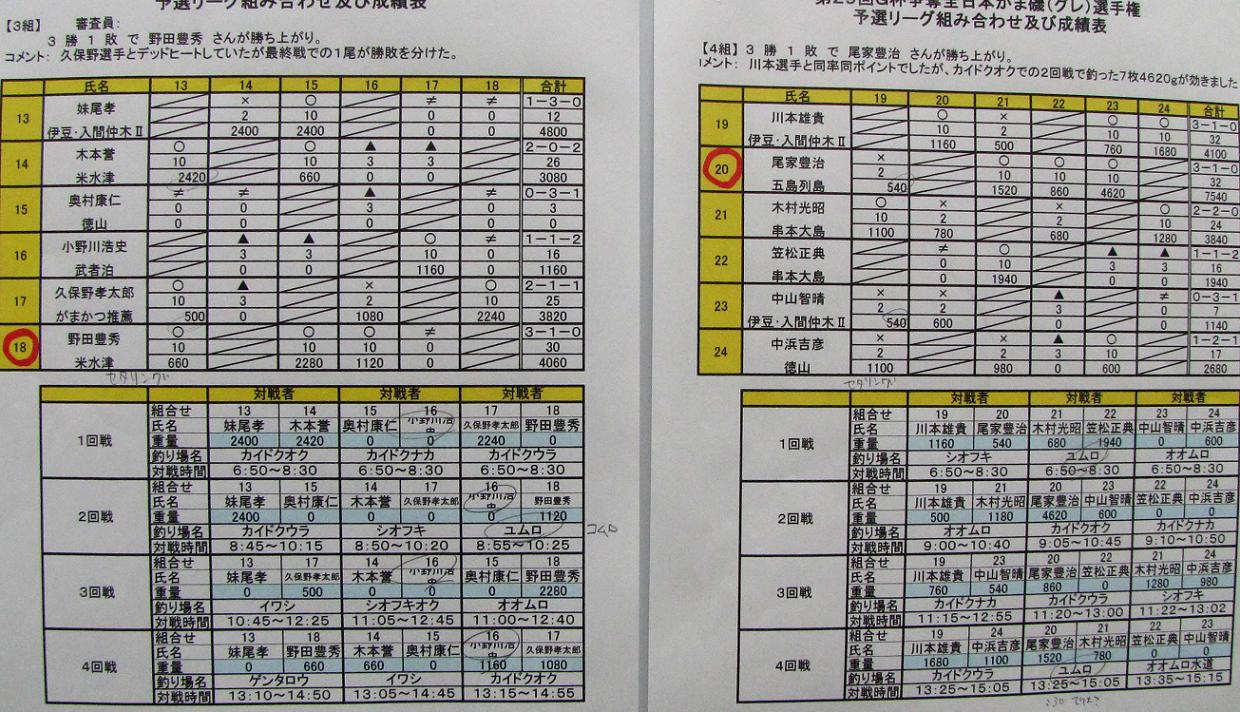 予選リーグ組み合わせ及び成績表
【3組】 審査員:
3 勝 1 敗 で 野田豊秀 さんが勝ち上がり。
コメント: 久保野選手とデッドヒートしていたが最終戦での1尾が勝敗を分けた。
氏名 13 14 15 16 17 18 合計
妹尾孝 × ○ ≠ ≠ 1-3-0
13 2 10 0 0 12
伊豆・入間仲木Ⅱ 2400 2400 0 0 4800
木本誉 ○ ○ ▲ ▲ 2-0-2
14 10 10 3 3 26
米水津 2420 660 0 0 3080
奥村康仁 ≠ ≠ ▲ ≠ 0-3-1
15 0 0 3 0 3
徳山 0 0 0 0 0
小野川浩史 ▲ ▲ ○ ≠ 1-1-2
16 3 3 10 0 16
武者泊 0 0 1160 0 1160
久保野孝太郎 ○ ▲ × ○ 2-1-1
17 10 3 2 10 25
がまかつ推薦 500 0 1080 2240 3820
野田豊秀 ○ ○ ○ ≠ 3-1-0
18 10 10 10 0 30
米水津 660 2280 1120 0 4060
セタリング
対戦者 対戦者 対戦者
1回戦
組合せ 13 14 15 16 17 18
氏名 妹尾孝 木本誉 奥村康仁 小野川浩 久保野孝太郎 野田豊秀
重量 2400 2420 0 0 2240 0
釣り場名 カイドクオク カイドクナカ カイドクウラ
対戦時間 6:50～8:30 6:50～8:30 6:50～8:30
2回戦
組合せ 13 15 14 17 16 18
氏名 妹尾孝 奥村康仁 木本誉 久保野孝太郎 小野川浩 野田豊秀
重量 2400 0 0 0 0 1120
釣り場名 カイドクウラ シオフキ ユムロ コムロ
対戦時間 8:45～10:15 8:50～10:20 8:55～10:25
3回戦
組合せ 13 17 14 16 15 18
氏名 妹尾孝 久保野孝太郎 木本誉 小野川浩 奥村康仁 野田豊秀
重量 0 500 0 0 0 2280
釣り場名 イワシ シオフキオク オオムロ
対戦時間 10:45～12:25 11:05～12:45 11:00～12:40
4回戦
組合せ 13 18 14 15 16 17
氏名 妹尾孝 野田豊秀 木本誉 奥村康仁 小野川浩 久保野孝太郎
重量 0 660 660 0 1160 1080
釣り場名 ゲンタロウ イワシ カイドクオク
対戦時間 13:10～14:50 13:05～14:45 13:15～14:55
G杯争奪全日本がま磯(グレ)選手権
予選リーグ組み合わせ及び成績表
【4組】 3 勝 1 敗 で 尾家豊治 さんが勝ち上がり。
メント: 川本選手と同率同ポイントでしたが、カイドクオクでの2回戦で釣った7枚4620gが効きました
氏名 19 20 21 22 23 24 合計
川本雄貴 ○ × ○ ○ 3-1-0
19 10 2 10 10 32
伊豆・入間仲木Ⅱ 1160 500 760 1680 4100
尾家豊治 × ○ ○ ○ 3-1-0
20 2 10 10 10 32
五島列島 540 1520 860 4620 7540
木村光昭 ○ × × ○ 2-2-0
21 10 2 2 10 24
串本大島 1100 780 680 1280 3840
笠松正典 ≠ ○ ▲ ▲ 1-1-2
22 0 10 3 3 16
串本大島 0 1940 0 0 1940
中山智晴 × × ▲ ≠ 0-3-1
23 2 2 3 0 7
伊豆・入間仲木Ⅱ 540 600 0 0 1140
中浜吉彦 × × ▲ ○ 1-2-1
24 2 2 3 10 17
徳山 1100 980 0 600 2680
セタリング
対戦者 対戦者 対戦者
1回戦
組合せ 19 20 21 22 23 24
氏名 川本雄貴 尾家豊治 木村光昭 笠松正典 中山智晴 中浜吉彦
重量 1160 540 680 1940 0 600
釣り場名 シオフキ ユムロ オオムロ
対戦時間 6:50～8:30 6:50～8:30 6:50～8:30
2回戦
組合せ 19 21 20 23 22 24
氏名 川本雄貴 木村光昭 尾家豊治 中山智晴 笠松正典 中浜吉彦
重量 500 1180 4620 600 0 0
釣り場名 オオムロ カイドクオク カイドクナカ
対戦時間 9:00～10:40 9:05～10:45 9:10～10:50
3回戦
組合せ 19 23 20 22 21 24
氏名 川本雄貴 中山智晴 尾家豊治 笠松正典 木村光昭 中浜吉彦
重量 760 540 860 0 1280 980
釣り場名 カイドクナカ カイドクウラ シオフキ
対戦時間 11:15～12:55 11:20～13:00 11:22～13:02
4回戦
組合せ 19 24 20 21 22 23
氏名 川本雄貴 中浜吉彦 尾家豊治 木村光昭 笠松正典 中山智晴
重量 1680 1100 1520 780 0 0
釣り場名 カイドクウラ ユムロ オオムロ水道
対戦時間 13:25～15:05 13:25～15:05 13:35～15:15